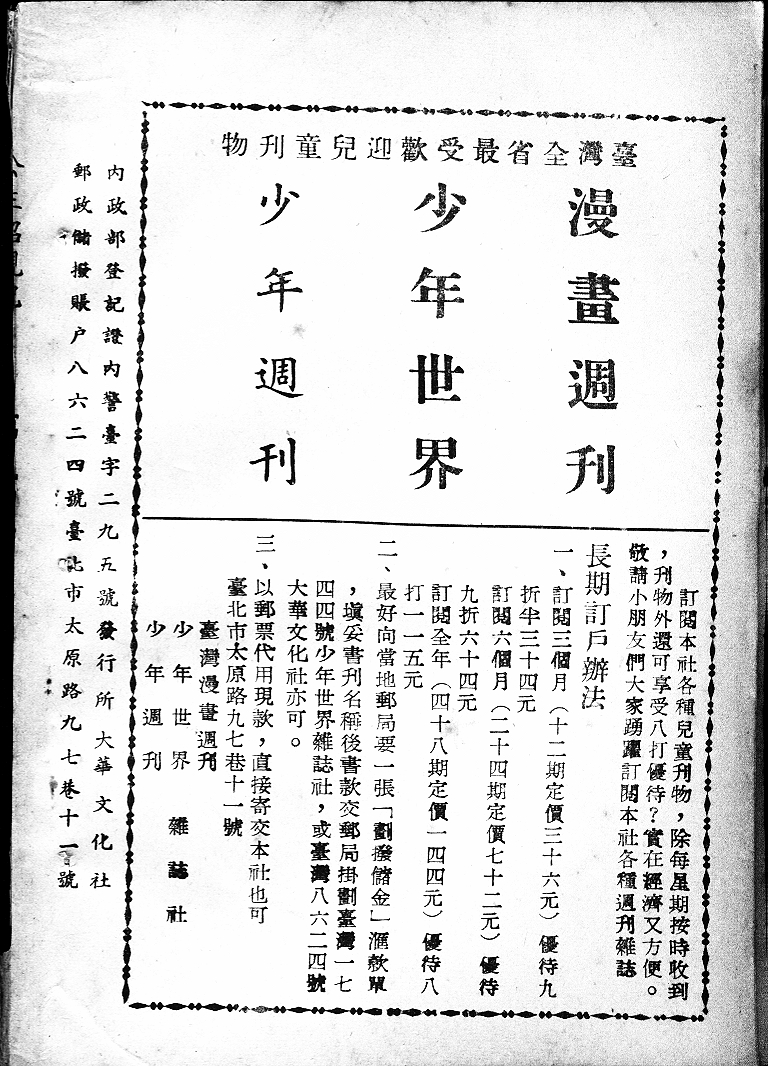 臺灣全省最受歡迎兒童刊物
漫畫週刊
少年世界
少年週刊
訂閱本社各種兒童刊物，除每星期按時收到
，刊物外還可享受八打優待？實在經濟又方便。
敬請小朋友們大家踴躍訂閱本社各種週刊雜誌
長期訂戶辦法
一、訂閱三個月（十二期定價三十六元）優待九
折半三十四元
訂閱六個月（二十四期定價七十二元）優待
九折六十四元
訂閱全年（四十八期定價一四四元）優待八
打一一五元
二、最好向當地郵局要一張「劃撥儲金」滙欵單
，塡妥書刊名稱後書款交郵局掛劃臺灣一七
四四號少年世界雜誌社，或臺灣八六二四號
大華文化社亦可。
三、以郵票代用現款，直接寄交本社也可
臺北市太原路九七巷十一號
臺灣漫畫週刊
少年世界 雜誌社
少年週刊
內政部登記證內警臺字二九五號發行所大華文化社
郵政儲撥賬户八六二四號臺北市太原路九七巷十一號